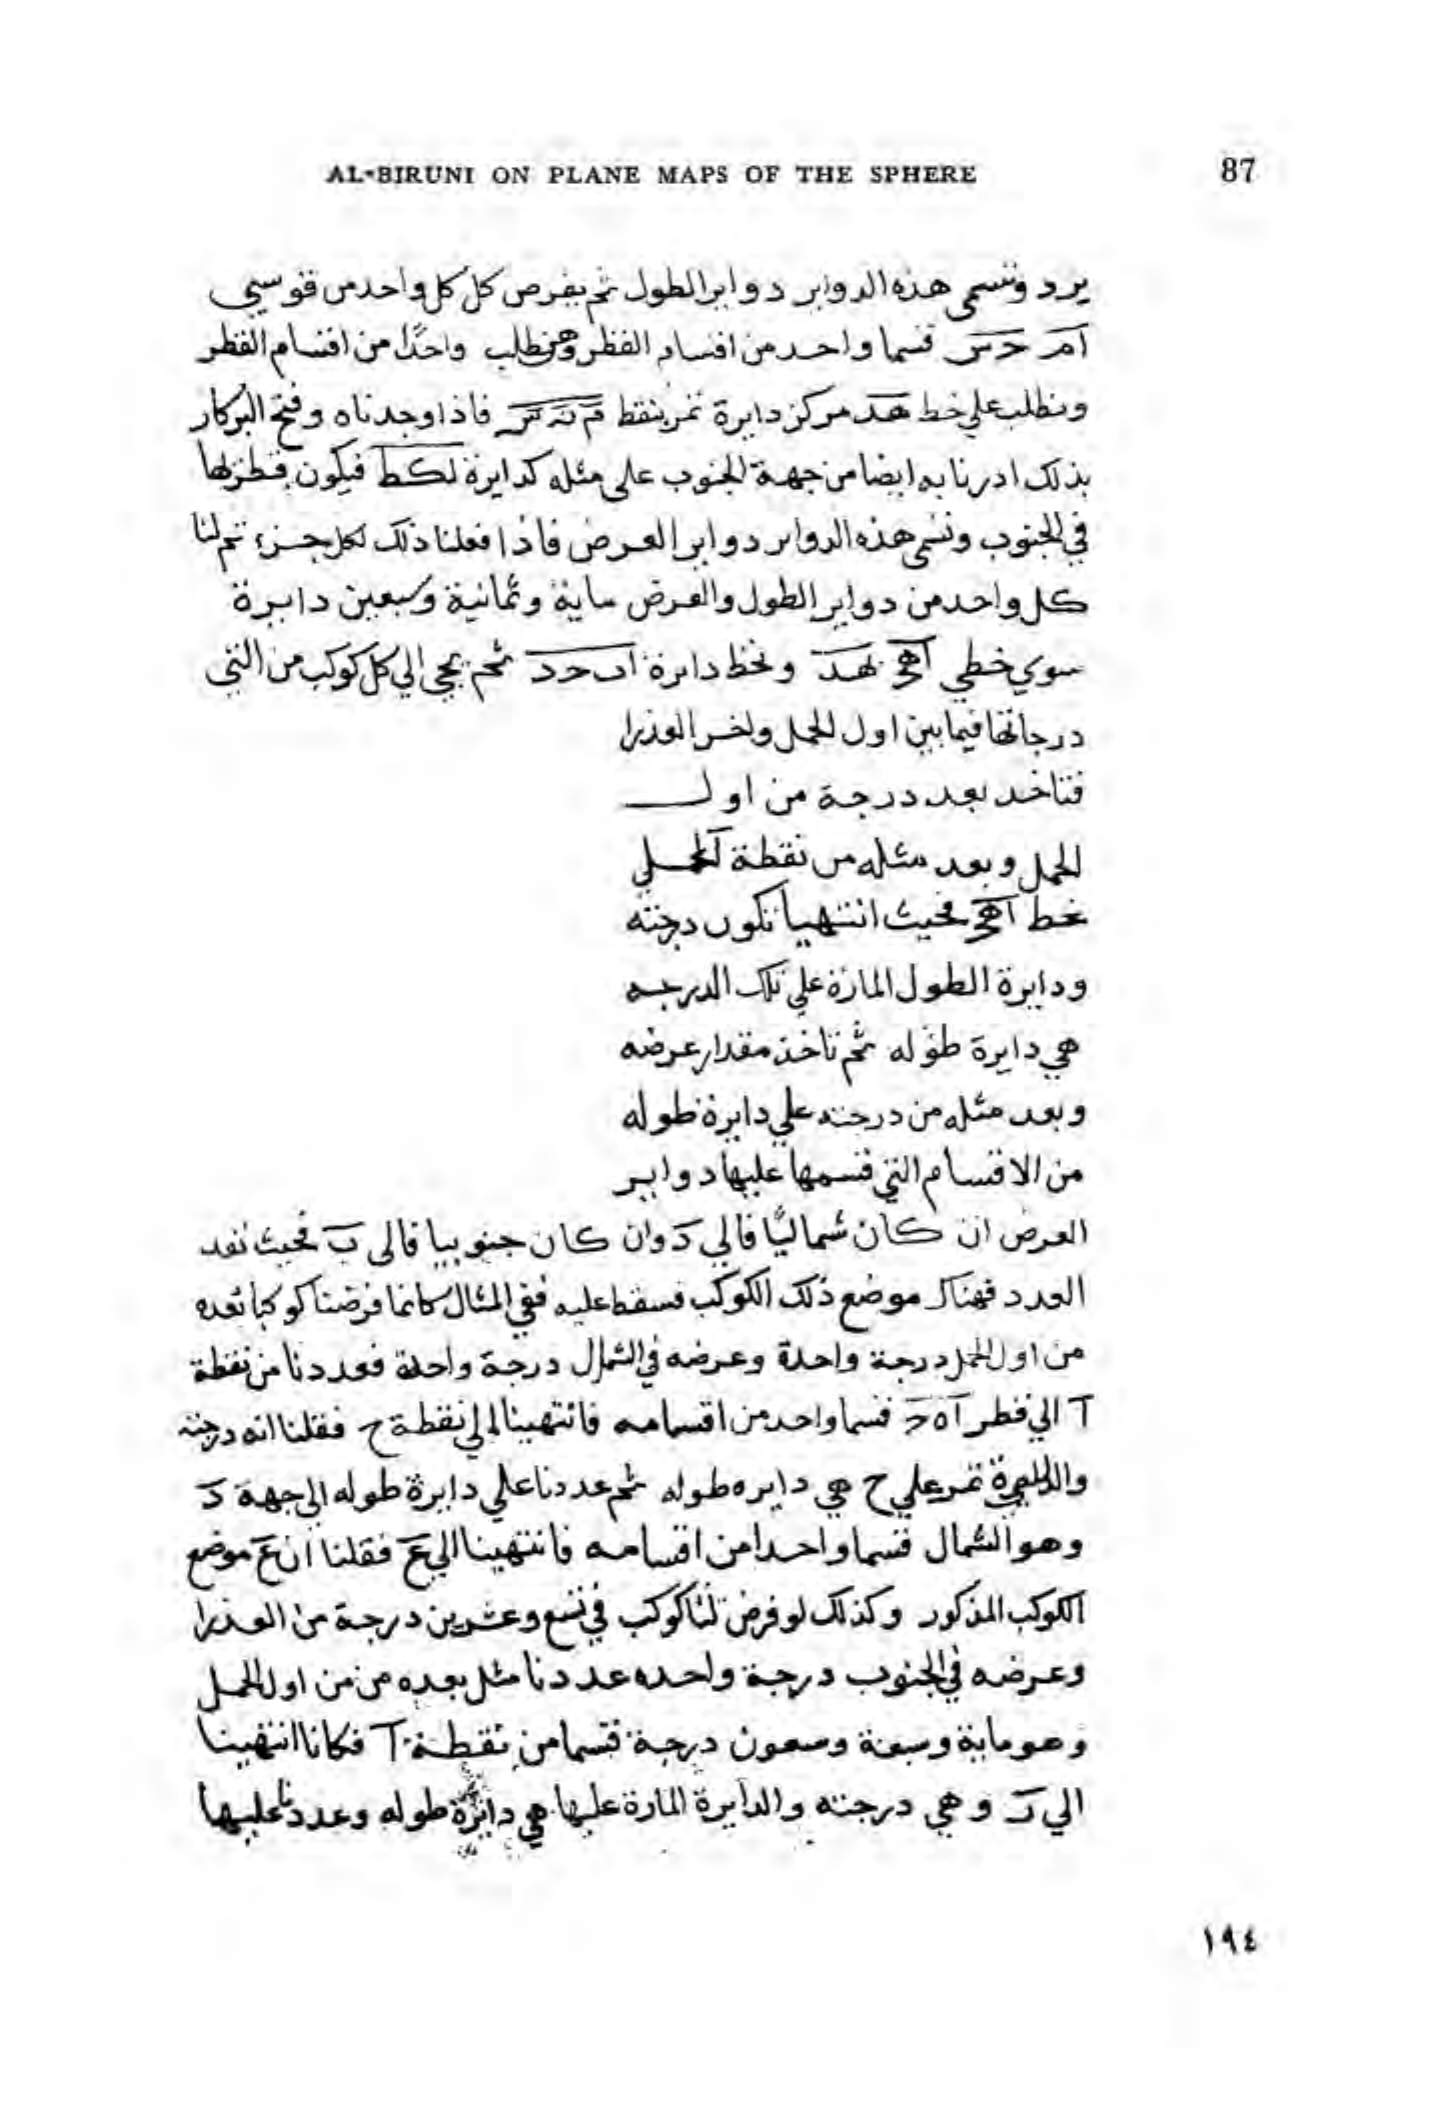 AL-BIRUNI ON PLANE MAPS OF THE SPHERE 87
يرد وتسمى هذه الدواير دواير الطول ثم يفرض كل كل واحد من قوسي
آم حس قسما واحد من اقسام القطر واحدًا من اقسام القطر
ونطلب علي خط هد مركز دايرة تمر بنقط فاذا وجدناه وفتح البركار
بذلك ادرنا به ايضا من جهة الجنوب على مثله كدايرة لكط فيكون
في الجنوب وتسمى هذه الدواير دواير العرض فاذا فعلنا ذلك لكل جزء تم لنا
كل واحد من دواير الطول والعرض ماية وثمانية وسبعين دايرة
سوي خطي آهح بهد ونخط دايرة اب حد ثم نجي الي كل كوكب من التي
درجاتها فيما بين اول الحمل واخر العذرا
فتاخد بعد درجة من اول
الحمل وبعد مثله من نقطة آ علي
خط آهح فحيث انتهيا تكون درجته
ودايرة الطول المارة علي تلك الدرجه
هي دايرة طوله ثم ناخذ مقدار عرضه
وبعد مثله من درجته علي دايرة طوله
من الاقسام التي قسمها عليها دواير
العرض ان كان شماليًا فالي د وان كان جنوبيا فالى ب فحيث نفد
العدد فهناك موضع ذلك الكوكب فسقط عليه ففي المثال كانما فرضنا كوكبا بعده
من اول الحمل درجة واحدة وعرضه في الشمال درجة واحدة فعددنا من نقطة
آ الي قطر آه ح قسما واحد من اقسامه فانتهينا الي نقطة ح فقلنا انه درجته
تمر علي ح هي دايره طوله ثم عددنا علي دايرة طوله الى جهة د
وهو الشمال قسما واحدا من اقسامه فانتهينا الي ع فقلنا ان ع موضع
الكوكب المذكور وكذلك لو فرض لنا كوكب في تسع وعشرين درجة من العذرا
وعرضه في الجنوب درجة واحده عددنا مثل بعده من من اول الحمل
وهو ماية وسبعة وسبعون درجة قسما من نقطة آ فكانا انتهينا
الي ك وهي درجته والدايرة المارة عليها هي دايرة طوله وعددنا عليها
١٩٤